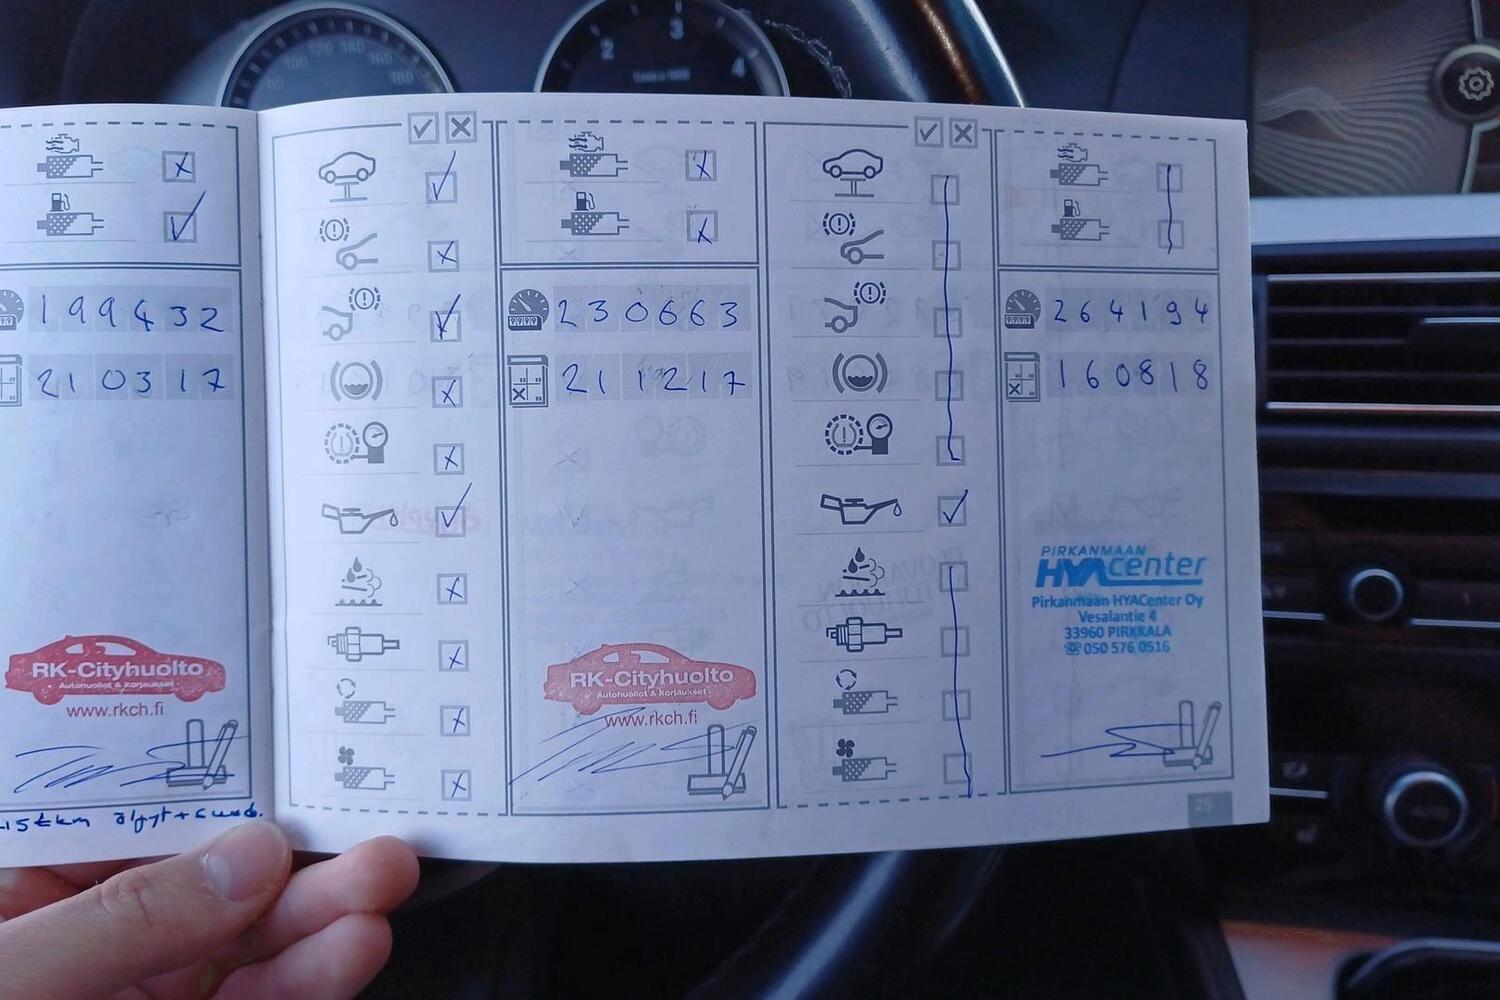 199432
210317
RK-Cityhuolto
Autohuollot & Korjaukset
www.rkch.fi
230663
211217
RK-Cityhuolto
Autohuollot & Korjaukset
www.rkch.fi
264194
160818
PIRKANMAAN
HYAcenter
Pirkanmaan HYACenter Oy
Vesalantie 4
33960 PIRKKALA
☏ 050 576 0516
25
2 3 4